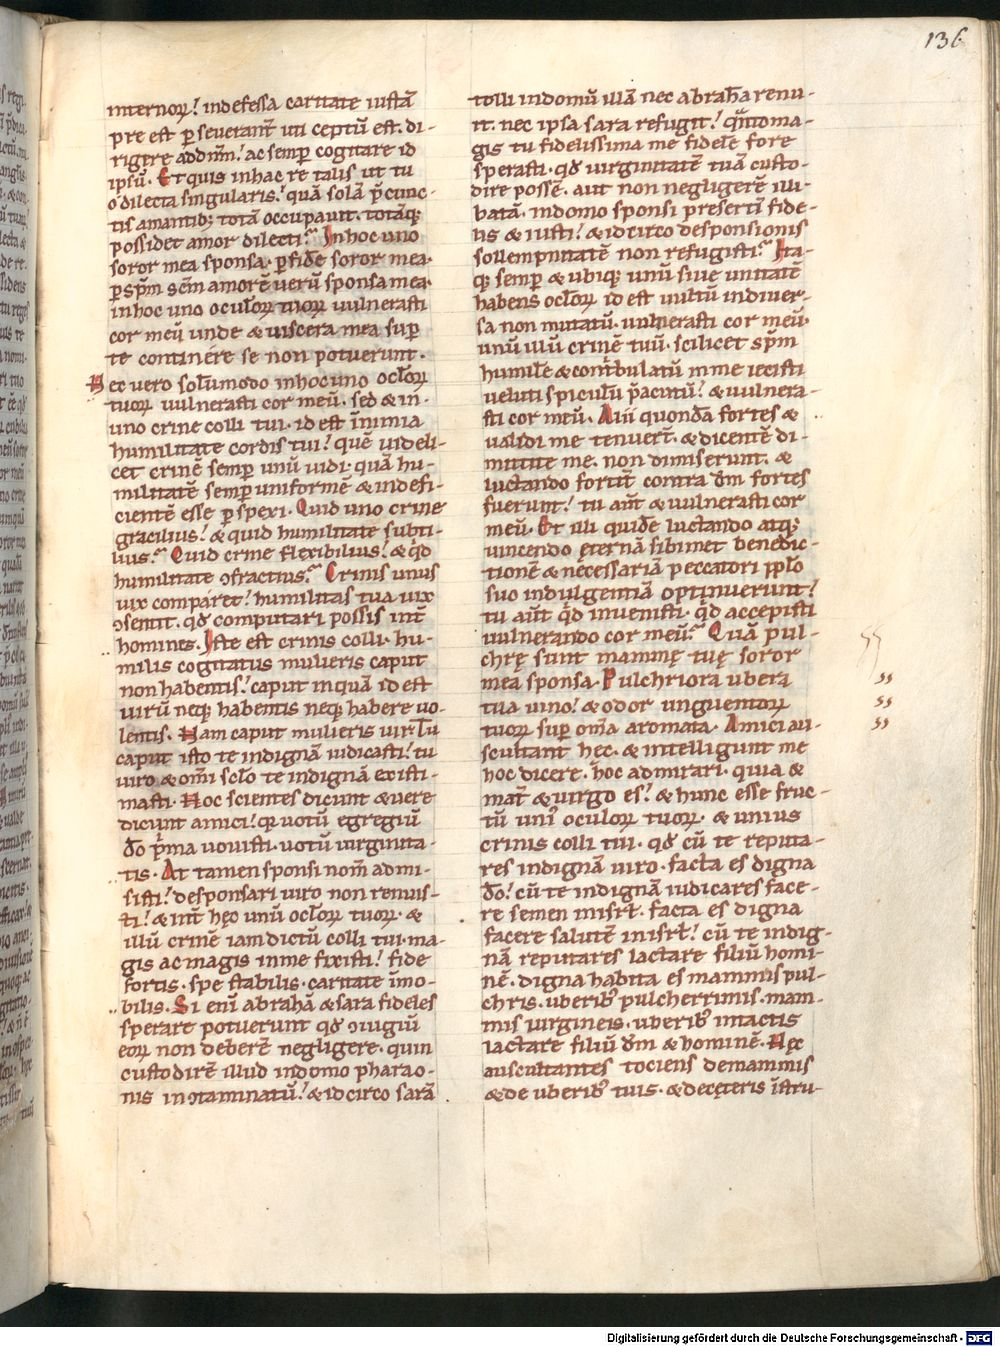 136
internoꝝ? indefessa caritate iustā
pre est ꝑseverant̄ uti ceptū est. di-
rigere addnm̄? ac semꝑ cogitare id
ipsū. Et quis inhac re talis ut tu
o dilecta singularis? quā solā p̄ cunc-
tis amantibꝫ totā occupauit. totāqꝫ
possidet amor dilecti? Inhoc uno
soror mea sponsa. ꝑ fidē soror mea.
ꝑ sp̄m sc̄m amorē verū sponsa mea.
inhoc uno ocul̄oꝝ tuoꝝ uulnerasti
cor meū unde & uiscera mea suꝑ
te continere se non potuerunt.
Nec vero solummodo inhoc uno ocl̄oꝝ
tuoꝝ uulnerasti cor meū. sed & in-
uno crine colli tui. id est in nimia
humilitate cordis tui? quē uideli-
cet crinē semꝑ unū uidi. quā hu-
militatē semꝑ uniformē & indefi-
cientē esse ꝑspexi. Quid uno crine
gracilius? & quid humilitate subti-
lius? Quid crine flexibilius? & qd̄
humilitate ꝯfractius? Crinis unus
uix comparet? humilitas tua uix
ꝯsentit. qd̄ computari possis int̄
homines. Iste est crinis colli. hu-
milis cogitatus mulieris caput
non habentis? caput inquā id est
uirū neqꝫ habentis neqꝫ habere uo-
lentis. Nam caput mulieris vir. Tu
caput isto te indignā iudicasti? tu
uiro & om̄i sol̄o te indignā existi-
masti. Hoc scientes dicunt & vere
dicunt amici? qꝛ uotū egregiū
dō pⁱma uovisti. uotū uirginita-
tis. At tamen sponsi nom̄ admi-
sisti? desponsari uiro non renuis-
ti? & int̄ hęc unū ocl̄oꝝ tuoꝝ. &
illū crinē iam dictū colli tui. ma-
gis ac magis inme fixisti? fide
fortis. spe stabilis. caritate īmo-
bilis. Si enī abrahā & sara fideles
sperare potuerunt qd̄ ꝯiugiū
eoꝝ non deberet̄ negligere. quin
custodiret̄ illud indomo pharao-
nis inꝯtaminatū? & idcirco sarā
tolli indomū illā nec abraham renu-
it. nec ipsa sara refugit? qn̄to ma-
gis tu fidelissima me fidelē fore
sperasti. qd̄ uirginitatē tuā custo-
dire possē. aut non negligerē illi-
batā. indomo sponsi presertī fide-
lis & iusti? & idcirco desponsionis
sollempnitatē non refugisti? Ita-
qꝫ semꝑ & ubiqꝫ unū siue unitatē
habens ocl̄oꝝ id est uultū indiver-
sa non mutatū. uulnerasti cor meū.
unū illū crinē tuū. scilicet sp̄m
humilē & contⁱbulatū inme iecisti
ueluti spiculū p̄acutū? & uulnera-
sti cor meū. Alii quondā fortes &
ualidi me tenuert̄. & dicentē di-
mittite me. non dimiserunt. &
luctando fortit̄ contra dm̄ fortes
fuerunt? tu aut̄ & uulnerasti cor
meū. Et illi quidē luctando atqꝫ
uincendo ęternā sibimet benedic-
tionē & necessariā peccatori ppl̄o
suo indulgentiā optinuerunt?
tu aut̄ qd̄ invenisti. qd̄ accepisti
uulnerando cor meū? Quā pul-
chrę sunt mammę tuę soror
mea sponsa. Pulchriora ubera
tua uino? & odor unguentoꝝ
tuoꝝ suꝑ om̄a aromata. Amici au-
scultant hęc. & intelligunt me
hoc dicere. hoc admirari. quia &
mat̄ & uirgo es? & hunc esse fruc-
tū uniꝰ oculoꝝ tuoꝝ. & unius
crinis colli tui. qd̄ cū te reputa-
res indignā uiro. facta es digna
dō? cū te indignā iudicares face-
re semen inisrl̄. facta es digna
facere salutē inisrl̄? cū te indig-
nā reputares lactare filiū homi-
nē. digna habita es mammis pul-
chris. uberibꝰ pulcherrimis. mam-
mis uirgineis. uberibꝰ intactis
lactare filiū dm̄ & hominē. Hęc
auscultantes tociens de mammis
& de uberibꝰ tuis. & de cęteris īstru-
Digitalisierung gefördert durch die Deutsche Forschungsgemeinschaft - DFG